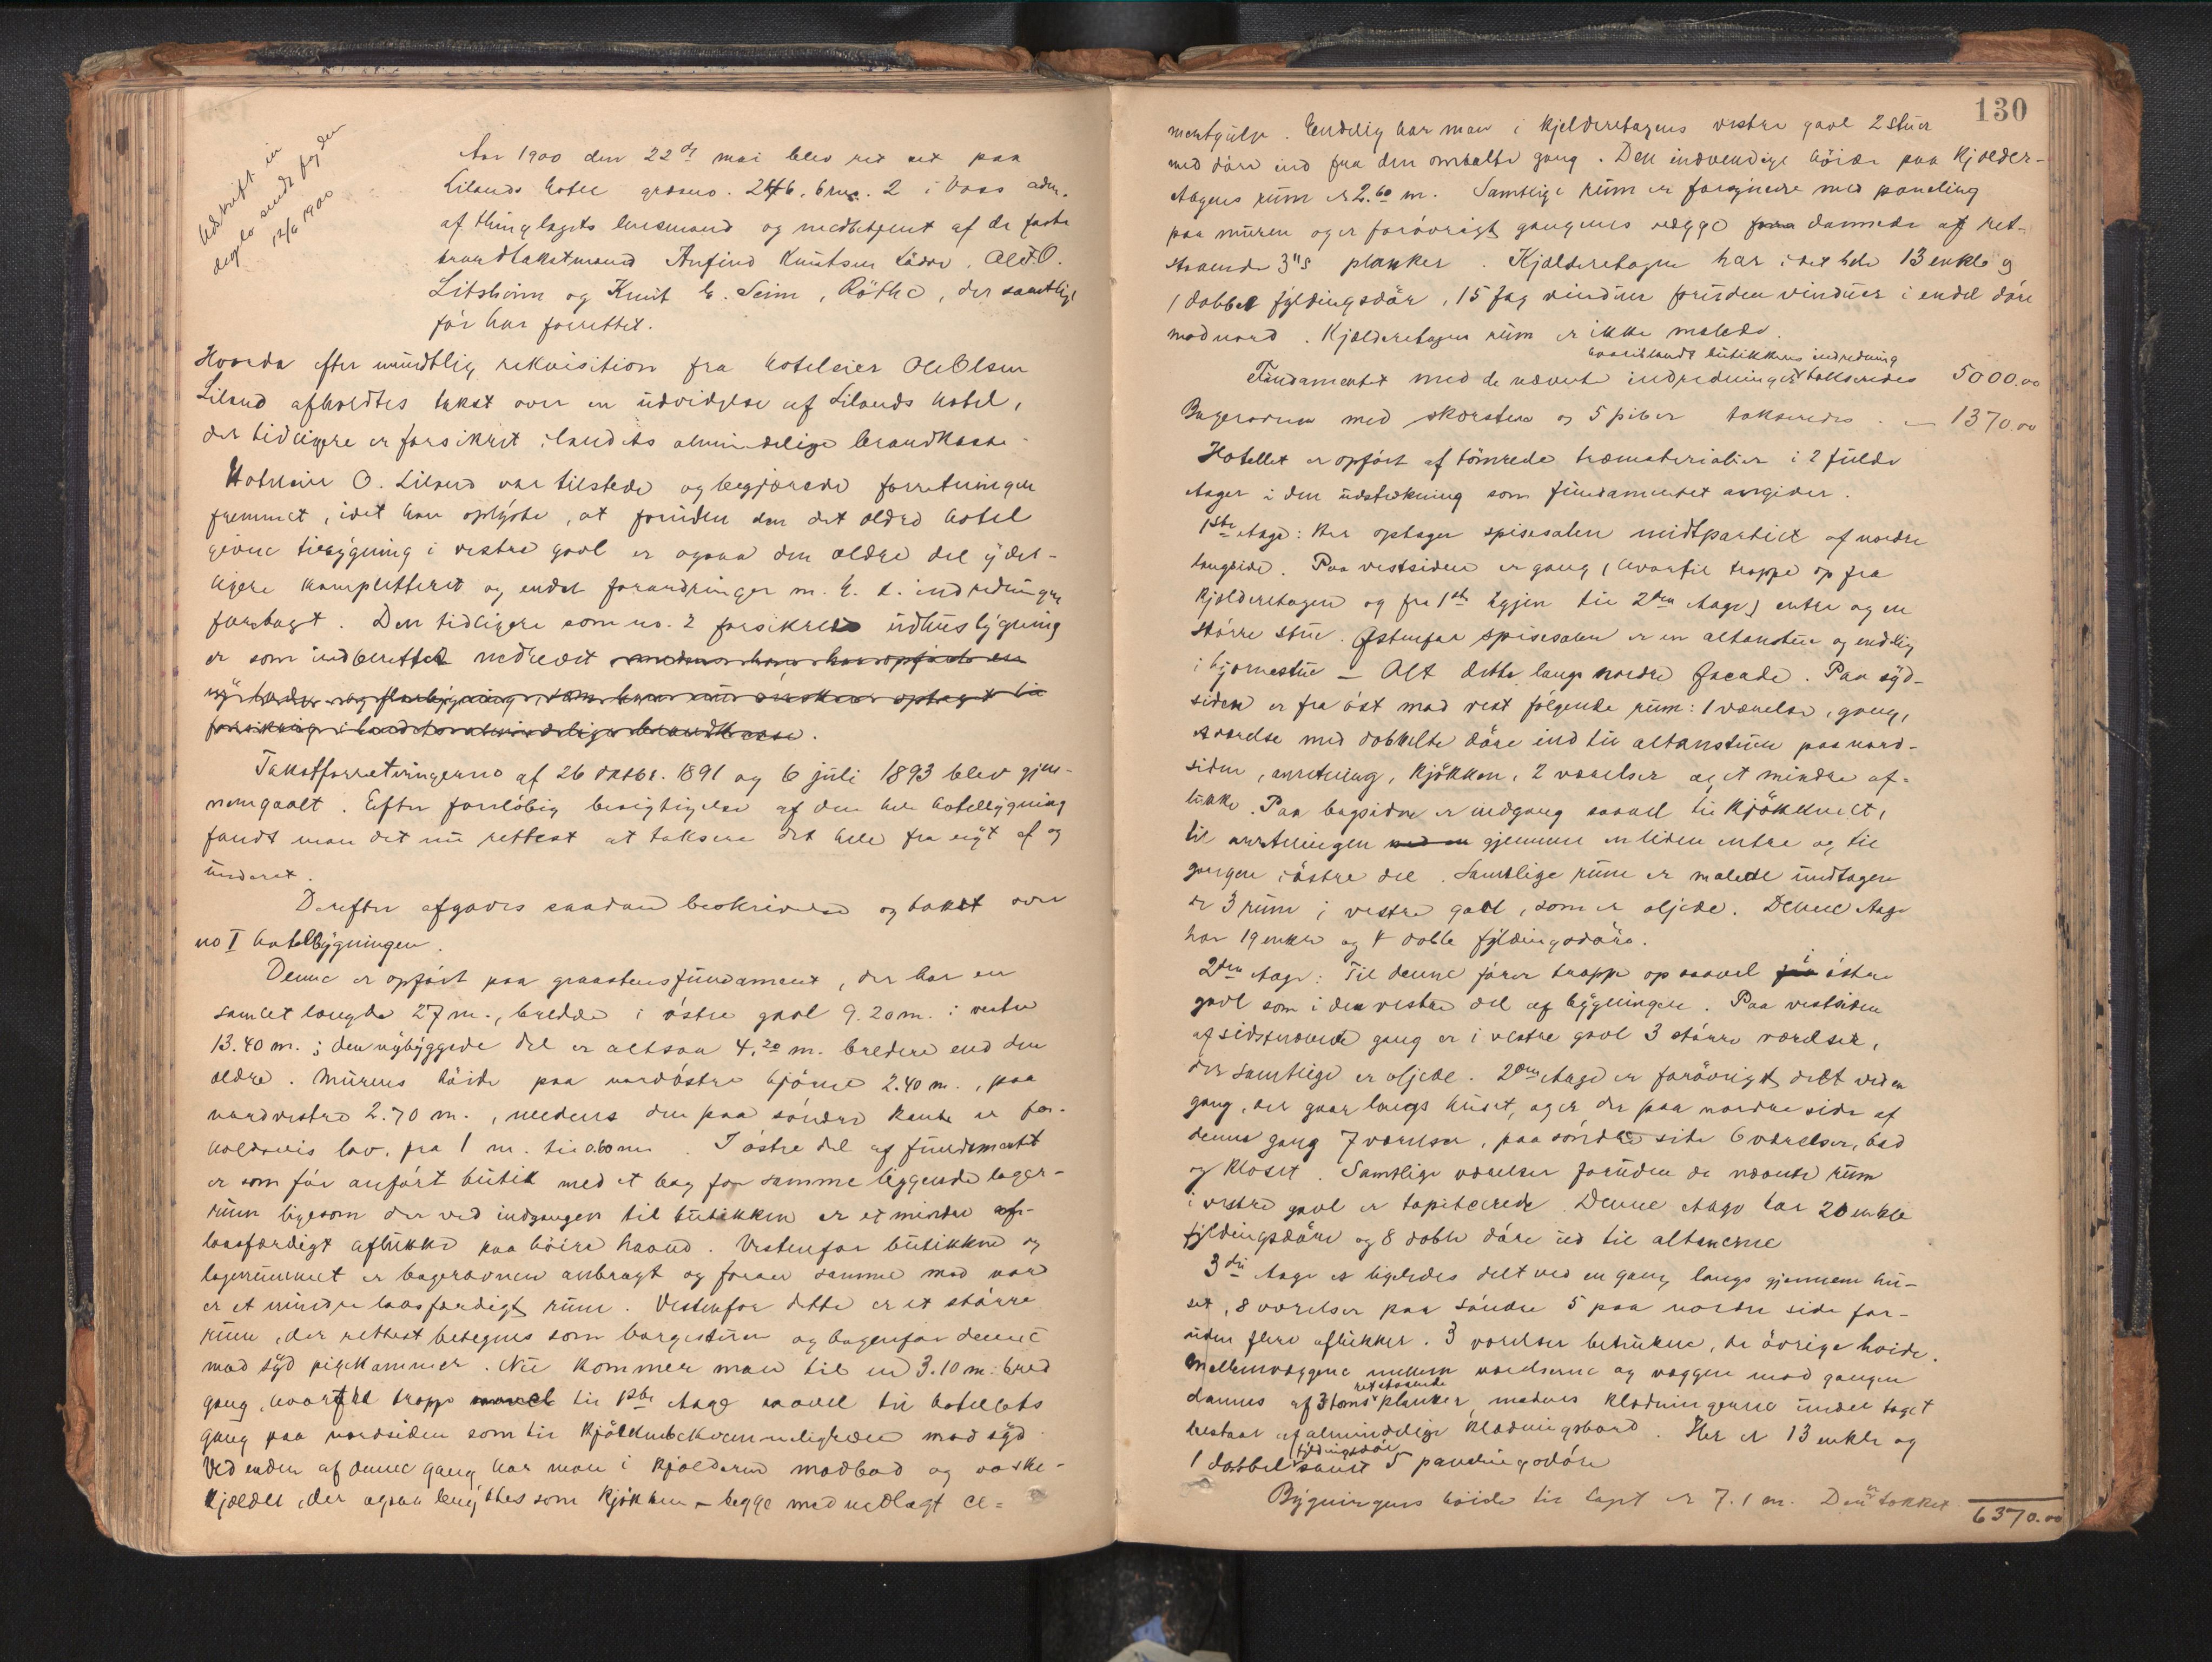 Udskrift in
duplo sendt fogden
12/6 1900
Aar 1900 den 22de mai blev ret sat paa
Lilands hotel grdsno. 246, brus. 2 i Voss adm.
af thinglagets lensmand og medbetjent af de faste
brandtakstmænd Anfind Knutsen Lødve, Ole T. O.
Litsheim og Knut E. Seim, Røthe, der samtlige
før har forrettet.
Hvorda efter mundtlig rekvisition fra hoteleier Ole Olsen
Liland afholdtes takst over en udvidelse af Lilands hotel,
der tidligere er forsikret i landets almindelige brandkasse.
Hoteleier O. Liland var tilstede og begjærede forretningen
fremmet, idet han oplyste, at foruden den det ældre hotel
givne tilbygning i vestre gavl er ogsaa den ældre del yder-
ligere kompletteret og endel forandringer m. h. t. indredningen
foretagt. Den tidligere som no. 2 forsikrede udhusbygning
er som indberettet nedrevet medens han har opført en
ny lade- og flor bygning, som han nu ønsker optaget til
forsikring i landets almindelige brandkasse.
Takstforretningerne af 26 oktbr. 1891 og 6 juli 1893 blev gjen-
nemgaaet. Efter foreløbig besigtigelse af den hele hotelbygning
fandt man det nu rettest at taksere det hele fra nyt af og
underet.
Derefter afgaves saadan beskrivelse og takst over
no I hotelbygningen.
Denne er opført paa graastensfundament, der har en
samlet længde 27 m., bredde i østre gavl 9.20 m. i vestre
13.40 m.; den nybyggede del er altsaa 4.20 m. bredere end den
ældre. Murens høide paa nordøstre hjørne 2.40 m., paa
nordvestre 2.70 m., medens den paa søndre kant er for-
holdsvis lav, fra 1 m. til 0.60 m. I østre del af fundamentet
er som før anført butik med et bag for samme liggende lager-
rum ligesom der ved indgangen til butikken er et mindre af-
laasfærdigt aflukke paa høire haand. Vestenfor butikken og
lagerrummet er bagerovnen anbragt og foran samme mod nord
er et mindre laasfærdigt rum. Vestenfor dette er et større
rum, der rettest betegnes som borgestuen og bagenfor denne
mod syd pigekammer. Nu kommer man til en 3.10 m. bred
gang, hvorfra trappe saavel til 1ste etage saavel til hotellets
gang paa nordsiden som til kjøkkenbekvemmelighederne mod syd.
Ved enden af denne gang har man i kjælderen madbod og vaske-
kjælder, der ogsaa benyttes som kjøkken – begge med nedlagt ce=
130
mentgulv. Endelig har man i kjælderetagens vestre gavl 2 stuer
med døre ind fra den omtalte gang. Den indvendige høide paa kjælder-
etagens rum er 2.60 m. Samtlige rum er forsynede med paneling
paa muren og er forøvrigt gangenes vægge fora dannede af ret-
staaende 3"s planker. Kjælderetagen har i det hele 13 enkle og
1 dobbel fyldingsdør, 15 fag vinduer foruden vinduer i endel døre
mod nord. Kjælderetagens rum er ikke malede.
hvoriblandt butikkens indredning
Fundamentet med de nævnte indredninger takseredes 5000.00
Bagerovnen med skorsten og 5 piber takseredes - 1370.00
Hotellet er opført af tømrede træmaterialier i 2 fulde
etager i den udstrækning som fundamentet angiver.
1ste etage: Her optager spisesalen midtpartiet af nordre
langside. Paa vestsiden er gang (hvorfra trappe op fra
kjælderetagen og fra 1ste igjen til 2den etage) entre og en
større stue. Østenfor spisesalen er en altanstue og endelig
i hjørnestue – Alt dette langs nordre facade. Paa syd-
siden er fra øst mod vest følgende rum: 1 værelse, gang,
værelse med dobbelte døre ind til altanstuen paa nord-
siden, anretning, kjøkken, 2 værelser og et mindre af-
lukke. Paa bagsiden er indgang saavel til kjøkkenet,
til anretningen med en gjennem en liden entre og til
gangen i østre del. Samtlige rum er malede undtagen
de 3 rum i vestre gavl, som er oljede. Denne etage
har 19 enkle og 4 doble fyldingsdøre.
2den etage: Til denne fører trappe op saavel fra i østre
gavl som i den vestre del af bygningen. Paa vestsiden
af sidstnævnte gang er i vestre gavl 3 større værelser,
der samtlige er oljede. 2den etage er forøvrigt delt ved en
gang, der gaar langs huset, og er der paa nordre side af
denne gang 7 værelser, paa søndre side 6 værelser, bad
og kloset. Samtlige værelser foruden de nævnte rum
i vestre gavl er tapitcerede. Denne etage har 20 enkle
fyldingsdøre og 8 doble døre ud til altanerne
3die etage er ligeledes delt ved en gang langs gjennem hu-
set, 8 værelser paa søndre 5 paa nordre side for-
uden flere aflukker. 3 værelser betrukne, de øvrige hvide.
Mellemvæggene mellem værelserne og væggen mod gangen
retstaaende
dannes af 3 toms planker, medens klædningerne under taget
bestaar af almindelige klædningsbord. Her er 13 enkle og
fyldingsdør
1 dobbel samt 5 panelingsdøre
Bygningens høide til taget er 7.1 m. Den er tækket
6370.00